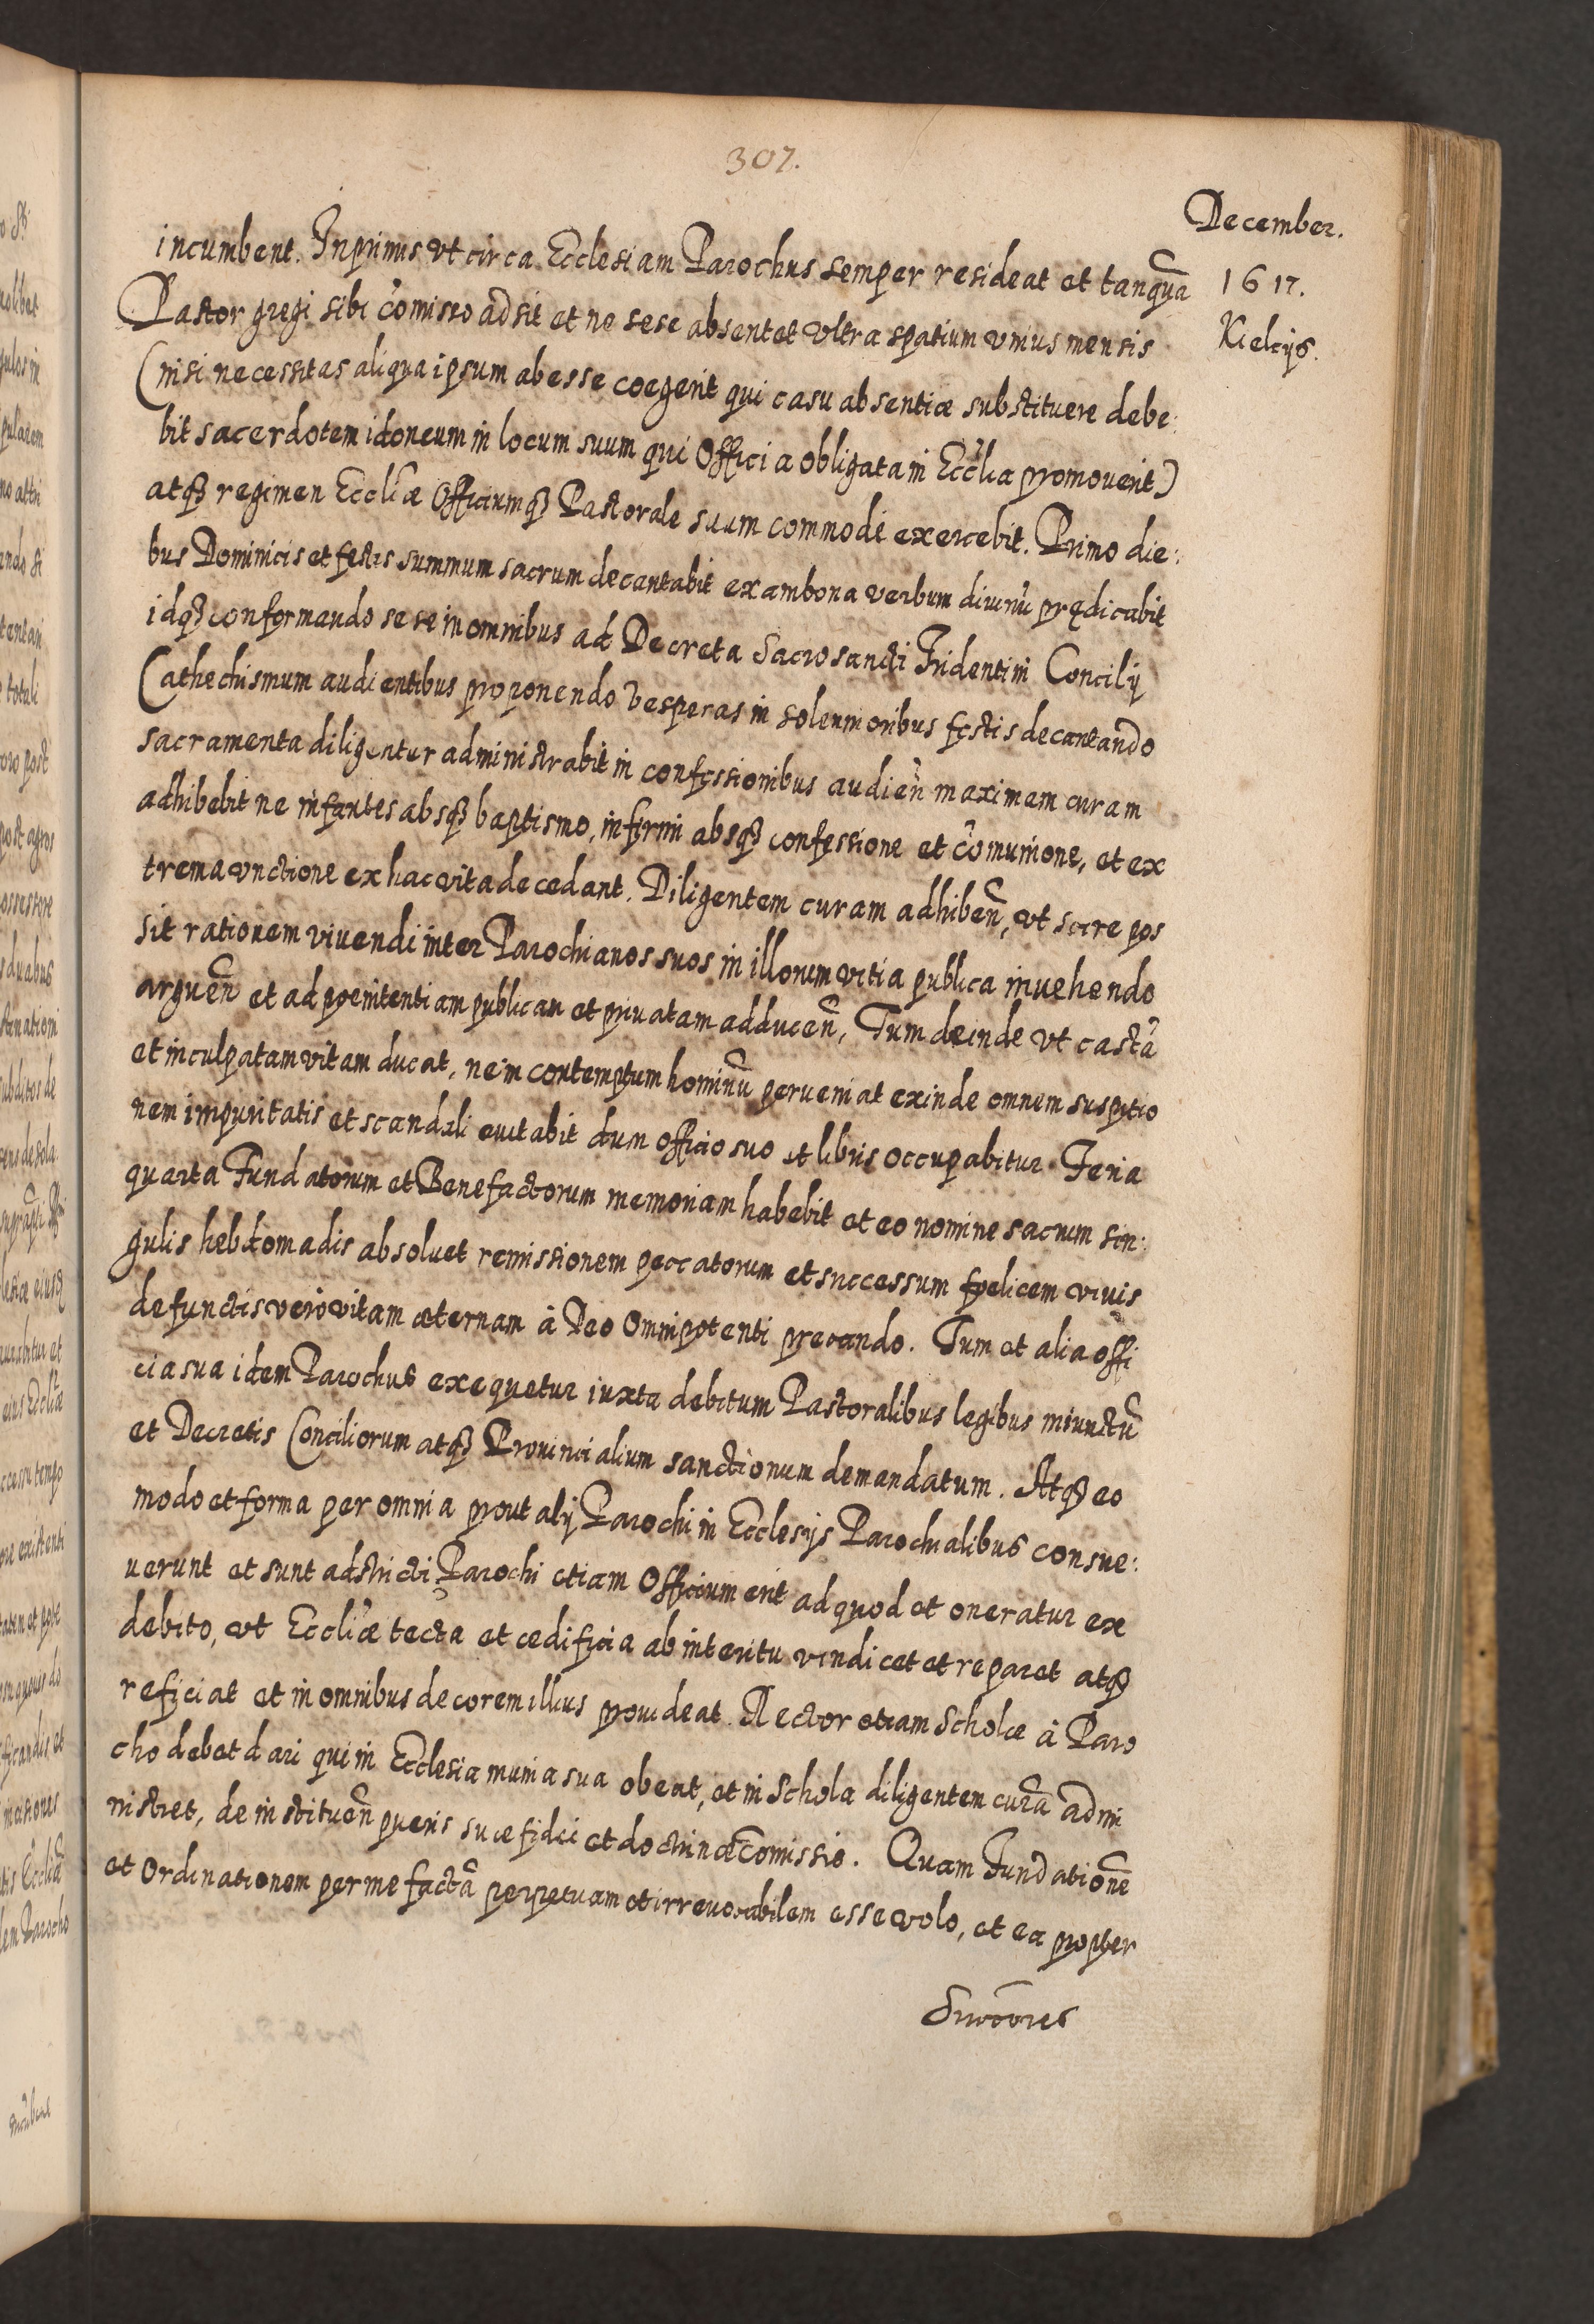 307.
December.
1617.
Kielcijs.
incumbent. Inprimis vt circa Ecclesiam Parochus semper resideat et tanquã
Pastor gregi sibi cõmisso adsit et ne sese absentet vltra spatium vnius mensis
(nisi necessitas aliqua ipsum abesse coegerit qui casu absentiæ substituere debe:
bit sacerdotem idoneum in locum suum qui Officia obligata in Eccl̃ia promouerit)
atq3 regimen Eccl̃iæ Officiumq3 Pastorale suum commodè exercebit. Primo die:
bus Dominicis et festis summum sacrum decantabit ex ambona verbum diuinũ prędicabit
idq3 conformando sese in omnibus ad Decreta Sacrosancti Tridentini Concilij
Cathechismum audientibus proponendo Vesperas in solennioribus festis decantando
sacramenta diligenter administrabit in confessionibus audieñ maximam curam
adhibebit ne infantes absq3 baptismo, infirmi absq3 confessione et cõmunione, et ex
trema vnctione ex hac vita decedant. Diligentem curam adhibeñ, vt scire pos
sit rationem viuendi inter Parochianos suos in illorum vitia publica inuehendo
argueñ et ad poenitentiam publicam et priuatam adduceñ, Tum deinde vt castã
et inculpatam vitam ducat, ne in contemptum hominũ perueniat exinde omnem suspitio
nem impuritatis et scandali euitabit dum officio suo et libris occupabitur. Feria
quarta Fundatorum et Benefactorum memoriam habebit et eo nomine sacrum sin:
gulis hebdomadis absoluet remissionem peccatorum et successum foelicem viuis
defunctis verò vitam æternam à Deo Omnipotenti precando. Tum et alia offi
cia sua idem Parochus exequetur iuxta debitum Pastoralibus legibus iniunctũ
et Decretis Conciliorum atq3 Prouincialium sanctionum demandatum. Atq3 eo
modo et forma per omnia prout alij Parochi in Ecclesijs Parochialibus consue:
uerunt et sunt adstricti Parochi etiam Officium erit ad quod et oneratur ex
debito, vt Eccl̃iæ tecta et ædificia ab interitu vindicet et reparet atq3
reficiat et in omnibus decorem illius prouideat. Rector etiam Scholæ à Paro
cho debet dari qui in Ecclesia munia sua obeat, et in Schola diligentem curã admi
nistret, de institueñ pueris suæ fidei et doctrinæ cõmissis. Quam Fundationẽ
et Ordinationem per me factã perpetuam et irreuocabilem esse volo, et ea propter